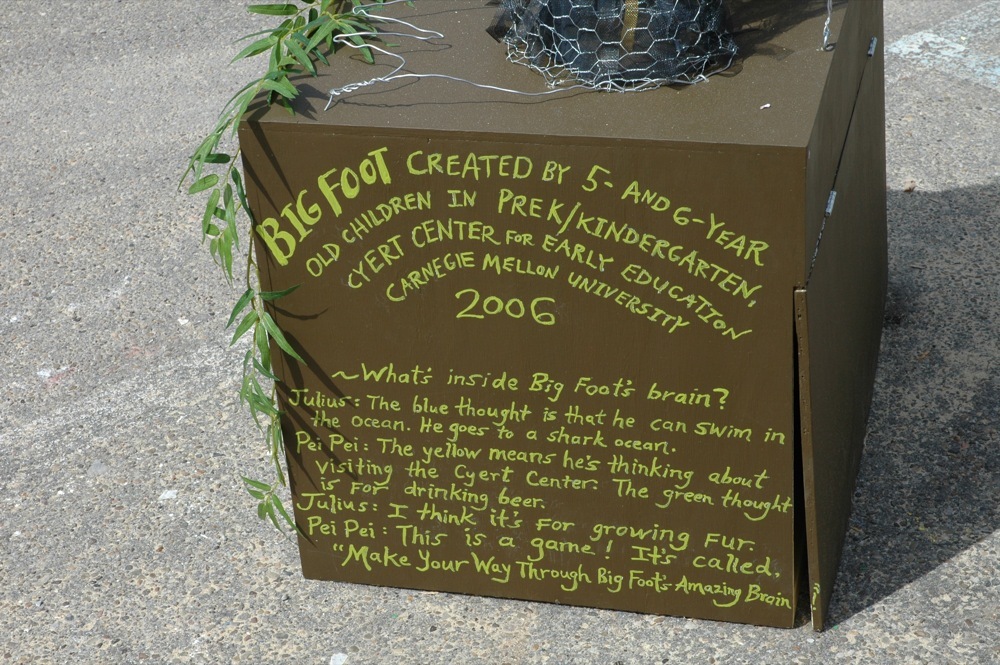 BIG FOOT CREATED BY 5- AND 6-YEAR
OLD CHILDREN IN PREK/KINDERGARTEN,
CYERT CENTER FOR EARLY EDUCATION
CARNEGIE MELLON UNIVERSITY
2006
~What's inside Big Foot's brain?
Julius: The blue thought is that he can swim in
the ocean. He goes to a shark ocean.
Pei Pei: The yellow means he's thinking about
visiting the Cyert Center. The green thought
is for drinking beer.
Julius: I think it's for growing fur.
Pei Pei: This is a game! It's called,
"Make Your Way Through Big Foot's Amazing Brain